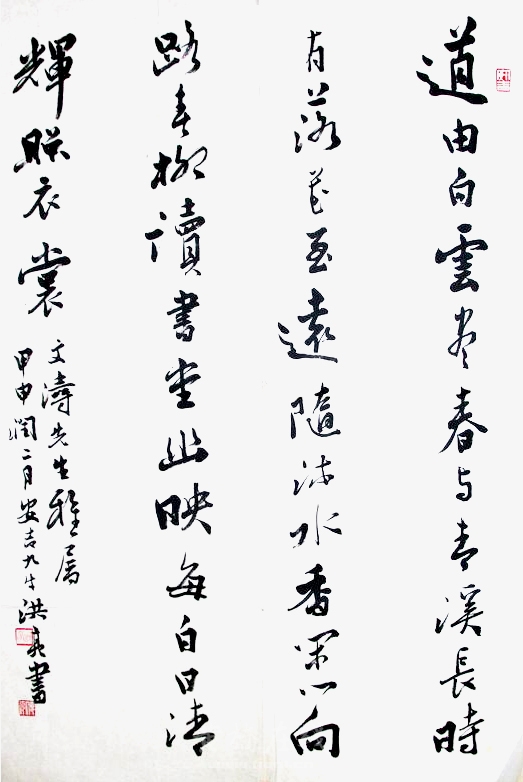 道由白雲尽春与青溪長時
有落花至遠隨流水香閑门向
路柳讀書堂幽映每白日清
輝照衣裳
文濤先生雅属
甲申润二月安吉洪亮書